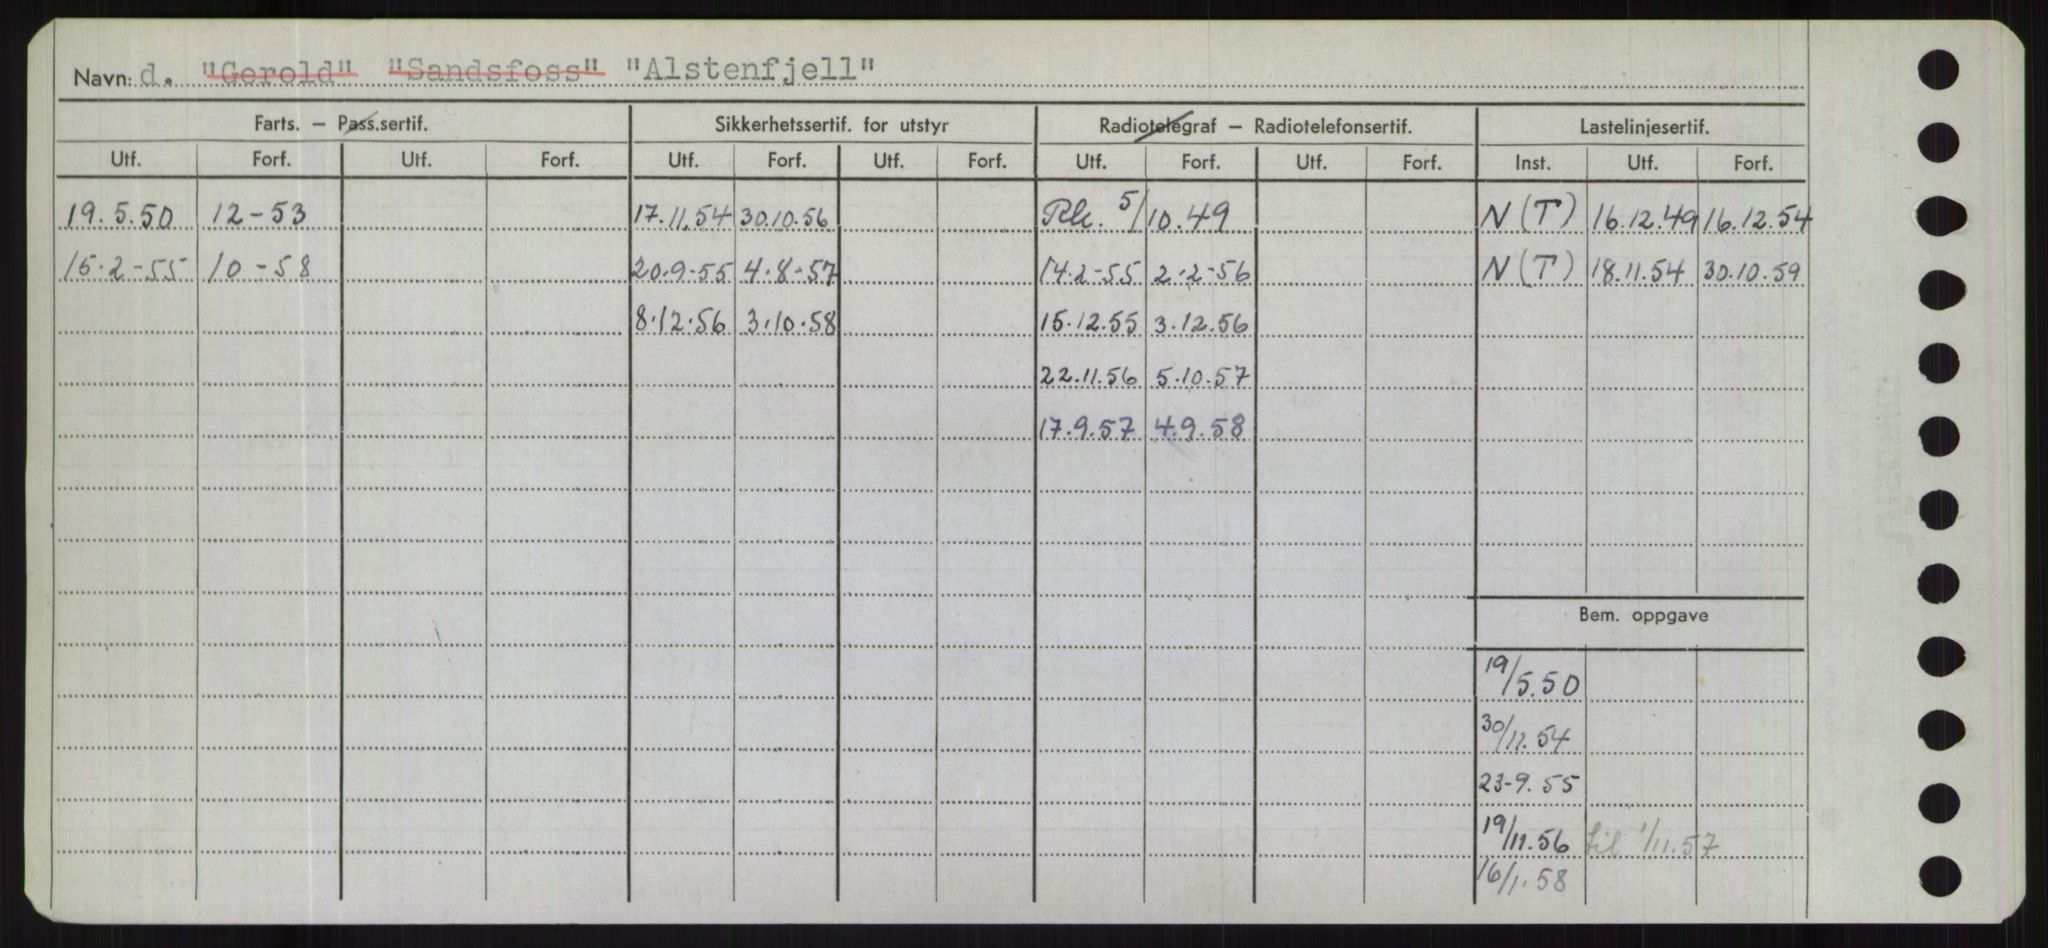 Navn: d. "Gerold" "Sandsfoss" "Alstenfjell"
Farts. — Pass.sertif. Sikkerhetssertif. for utstyr Radiotelegraf — Radiotelefonsertif. Lastelinjesertif.
Utf. Forf. Utf. Forf. Utf. Forf. Utf. Forf. Utf. Forf. Utf. Forf. Inst. Utf. Forf.
19.5.50 12-53 17.11.54 30.10.56 5/10.49 N(T) 16.12.49 16.12.54
15.2-55 10-58 20.9-55 4.8-57 14.2-55 2.2-56 N(T) 18.11.54 30.10.59
8.12.56 3.10.58 15.12.55 3.12.56
22.11.56 5.10.57
17.9.57 4.9.58
Bem. oppgave
19/5.50
30/11.54
23-9.55
19/11.56 til 1/11.57
16/1.58